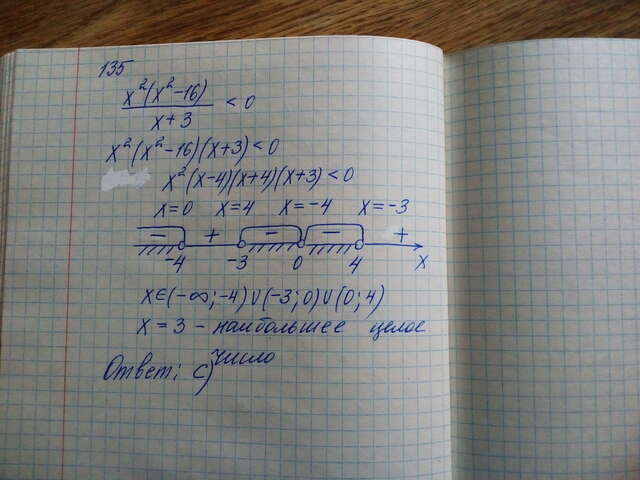 135
x²(x²-16)
x+3
< 0
x²(x²-16)(x+3)<0
x²(x-4)(x+4)(x+3)<0
x=0 x=4 x=-4 x=-3
- + - - +
-4 -3 0 4 x
x∈(-∞;-4)∪(-3;0)∪(0;4)
x = 3 - наибольшее целое
число
Ответ: с)